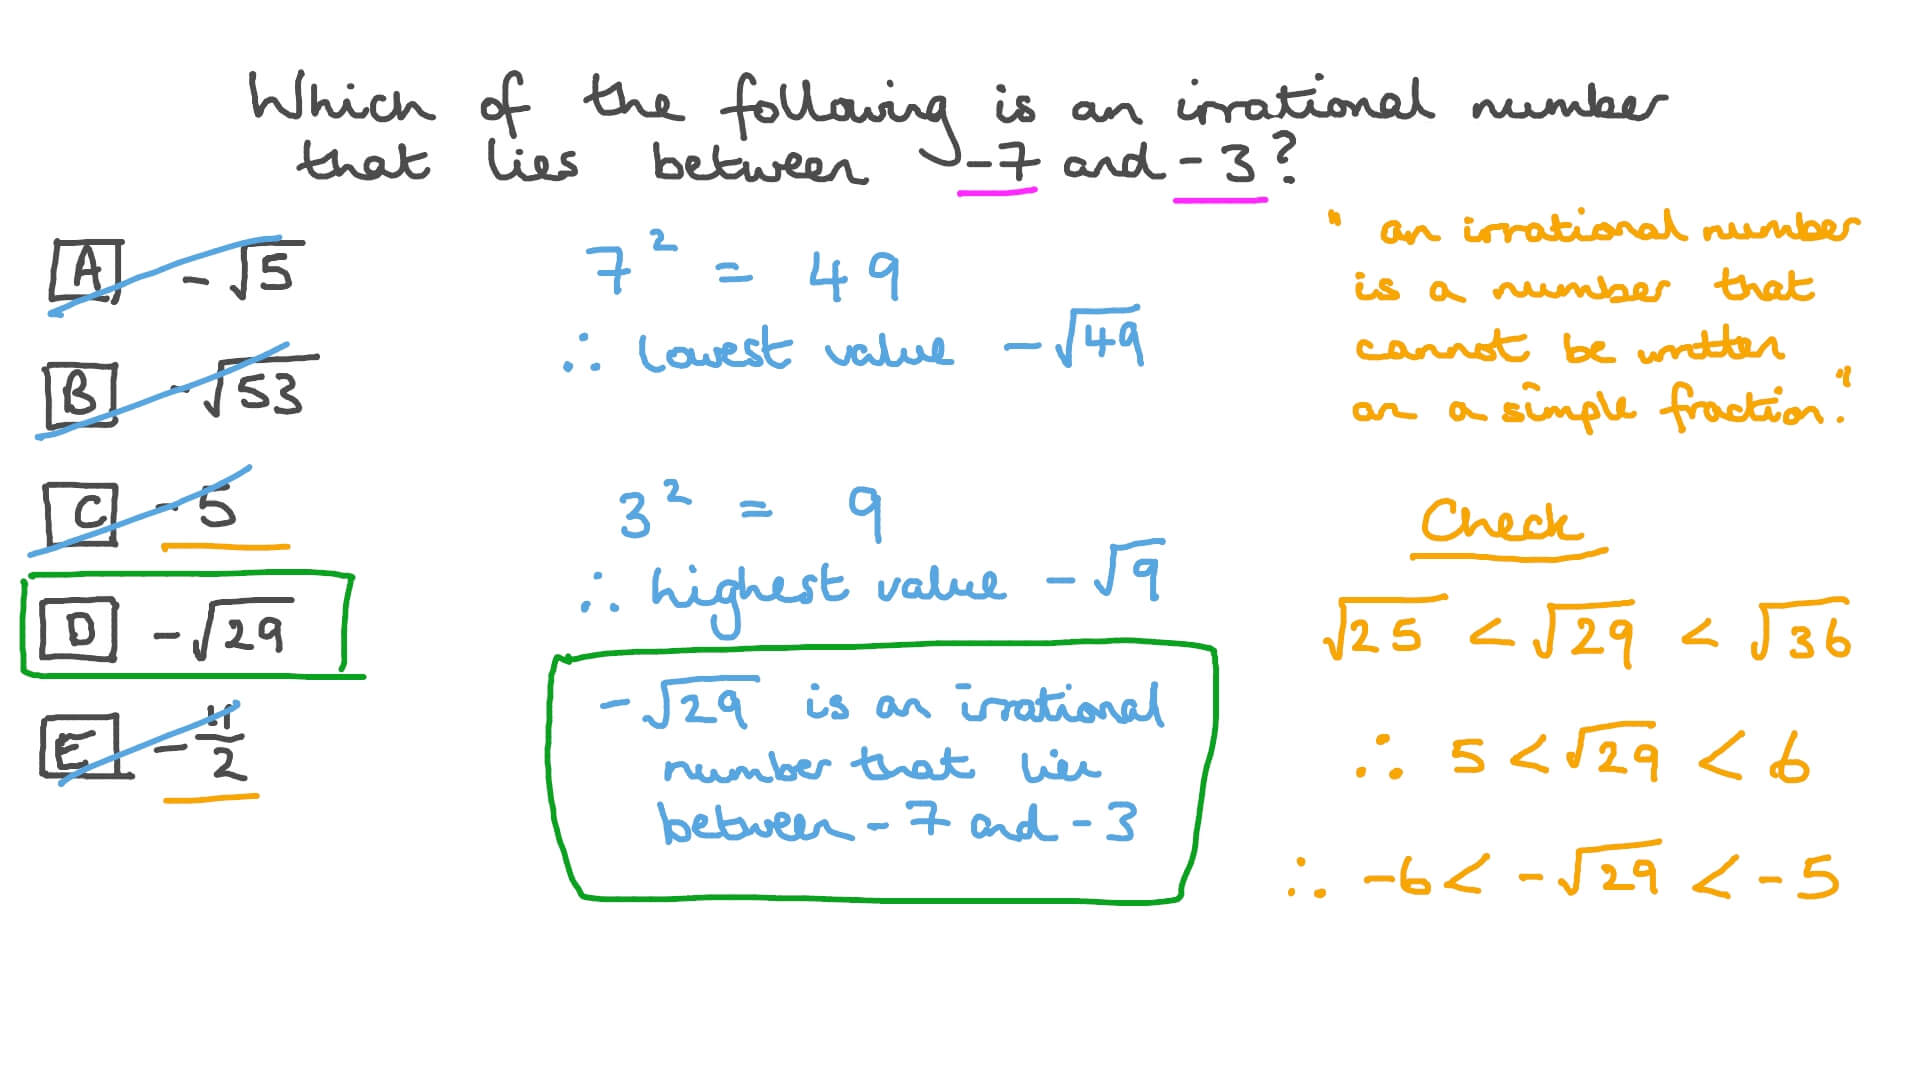 Which of the following is an irrational number
that lies between -7 and -3?
A -√5
B -√53
C -5
D -√29
E -11/2
7² = 49
∴ lowest value -√49
3² = 9
∴ highest value -√9
-√29 is an irrational
number that lies
between -7 and -3
" an irrational number
is a number that
cannot be written
as a simple fraction."
Check
√25 < √29 < √36
∴ 5 < √29 < 6
∴ -6 < -√29 < -5